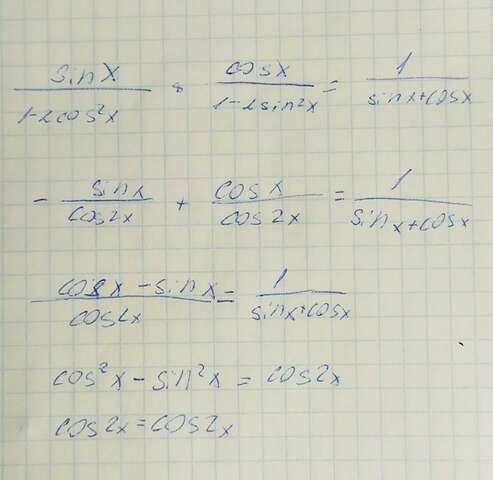 sinx/(1-2cos²x) + cosx/(1-2sin²x) = 1/(sinx+cosx)
- sinx/cos2x + cosx/cos2x = 1/(sinx+cosx)
(cosx - sinx)/cos2x = 1/(sinx+cosx)
cos²x - sin²x = cos2x
cos2x = cos2x